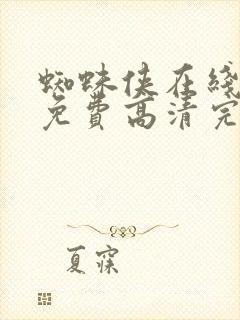 蜘蛛侠在线
免費高清完
夏寐